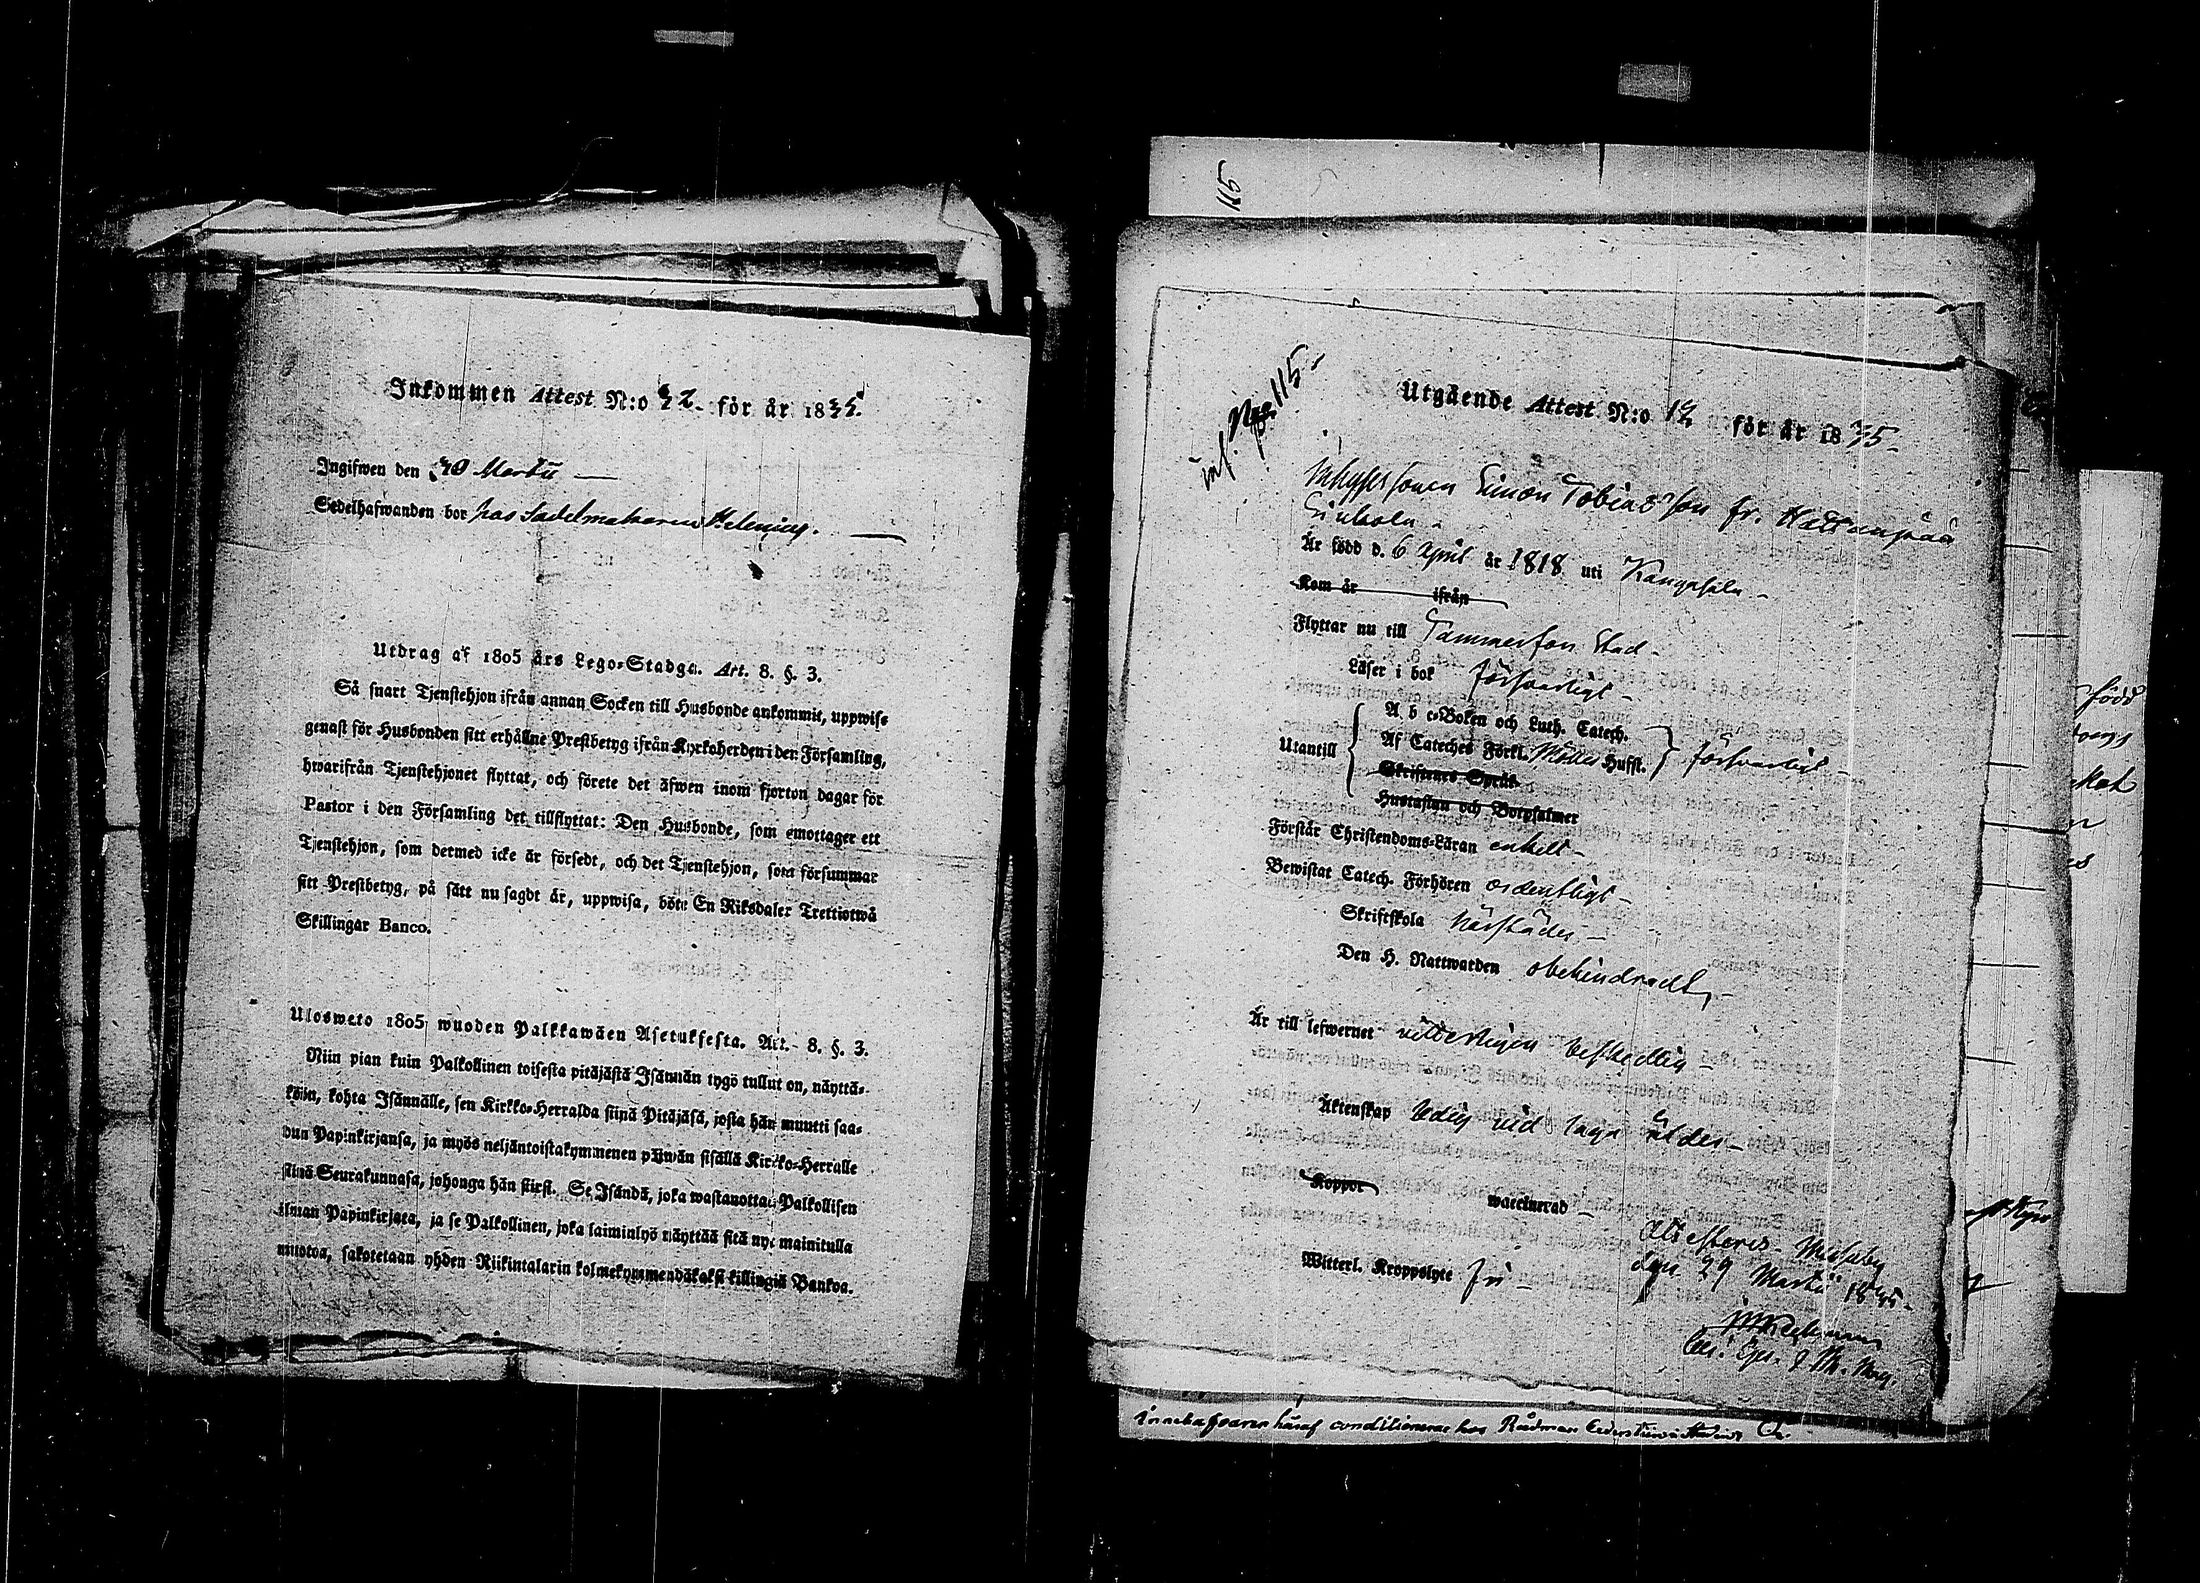 Inkommen Attest N:o 42 för år 1835.
Ingifwen den 30 Martii
Sedelhafwanden bor hos Sadelmakaren Helenius.
Utdrag af 1805 års Lego-Stadga. Art. 8. §. 3.
Så snart Tjenstehjon ifrån annan Socken till Husbonde ankommit, uppwise
genast för Husbonden sitt erhållne Prestbetyg ifrån Kyrkoherden i den Församling,
hwarifrån Tjenstehjonet flyttat, och förete det äfwen inom fjorton dagar för
Pastor i den Församling det tillflyttat: Den Husbonde, som emottager ett
Tjenstehjon, som dermed icke är försedt, och det Tjenstehjon, som försummar
sitt Prestbetyg, på sätt nu sagdt är, uppwisa, böte En Riksdaler Trettiotwå
Skillingar Banco.
Ulosweto 1805 wuoden Palkkawäen Asetuksesta. Art. 8. §. 3.
Niin pian kuin Palkollinen toisesta pitäjästä Isännän tygö tullut on, näyttä-
köön, kohta Isännälle, sen Kirkko-Herralda siinä Pitäjäsä, josta hän muutti saa-
dun Papinkirjansa, ja myös neljäntoistakymmenen päiwän sisällä Kirkko-Herralle
siinä Seurakunnasa, johonga hän siirsi. Se Isändä, joka wastanottaa Palkollisen
ilman Papinkirjata, ja se Palkollinen, joka laiminlyö näyttää sitä nyt mainitulla
muotoa, sakotetaan yhden Riikintalarin kolmekymmendäkaksi killingiä Bankoa.
115
inf. No 115
Utgående Attest N:o 12 för år 1835
Inhyses sonen Simon Tobias son fr. Hattanpää
Är född d. 6 April år 1818 uti Kangasala
Kom år ifrån
Flyttar nu till Tammerfors Stad
Läser i bok försvarligt
A b c-Boken och Luth. Catech.
Utantill Af Cateches Förkl. Möllers Hufst. försvarligt
Skriftenes Språk
Hustaflan och Botpsalmer
Förstår Christendoms-Läran enkelt
Bewistat Catech. Förhören ordentligt
Skriftskola härstädes
Den H. Nattwarden obehindradt
Är till lefwernet beskedlig
Äktenskap ledig vid laga ålder
Koppor waccinerad
Witterl. Kroppslyte Fri
Attesteras Messuby
den 29 Martii 1835
innehafvaren häraf conditionerar hos Rådman
född